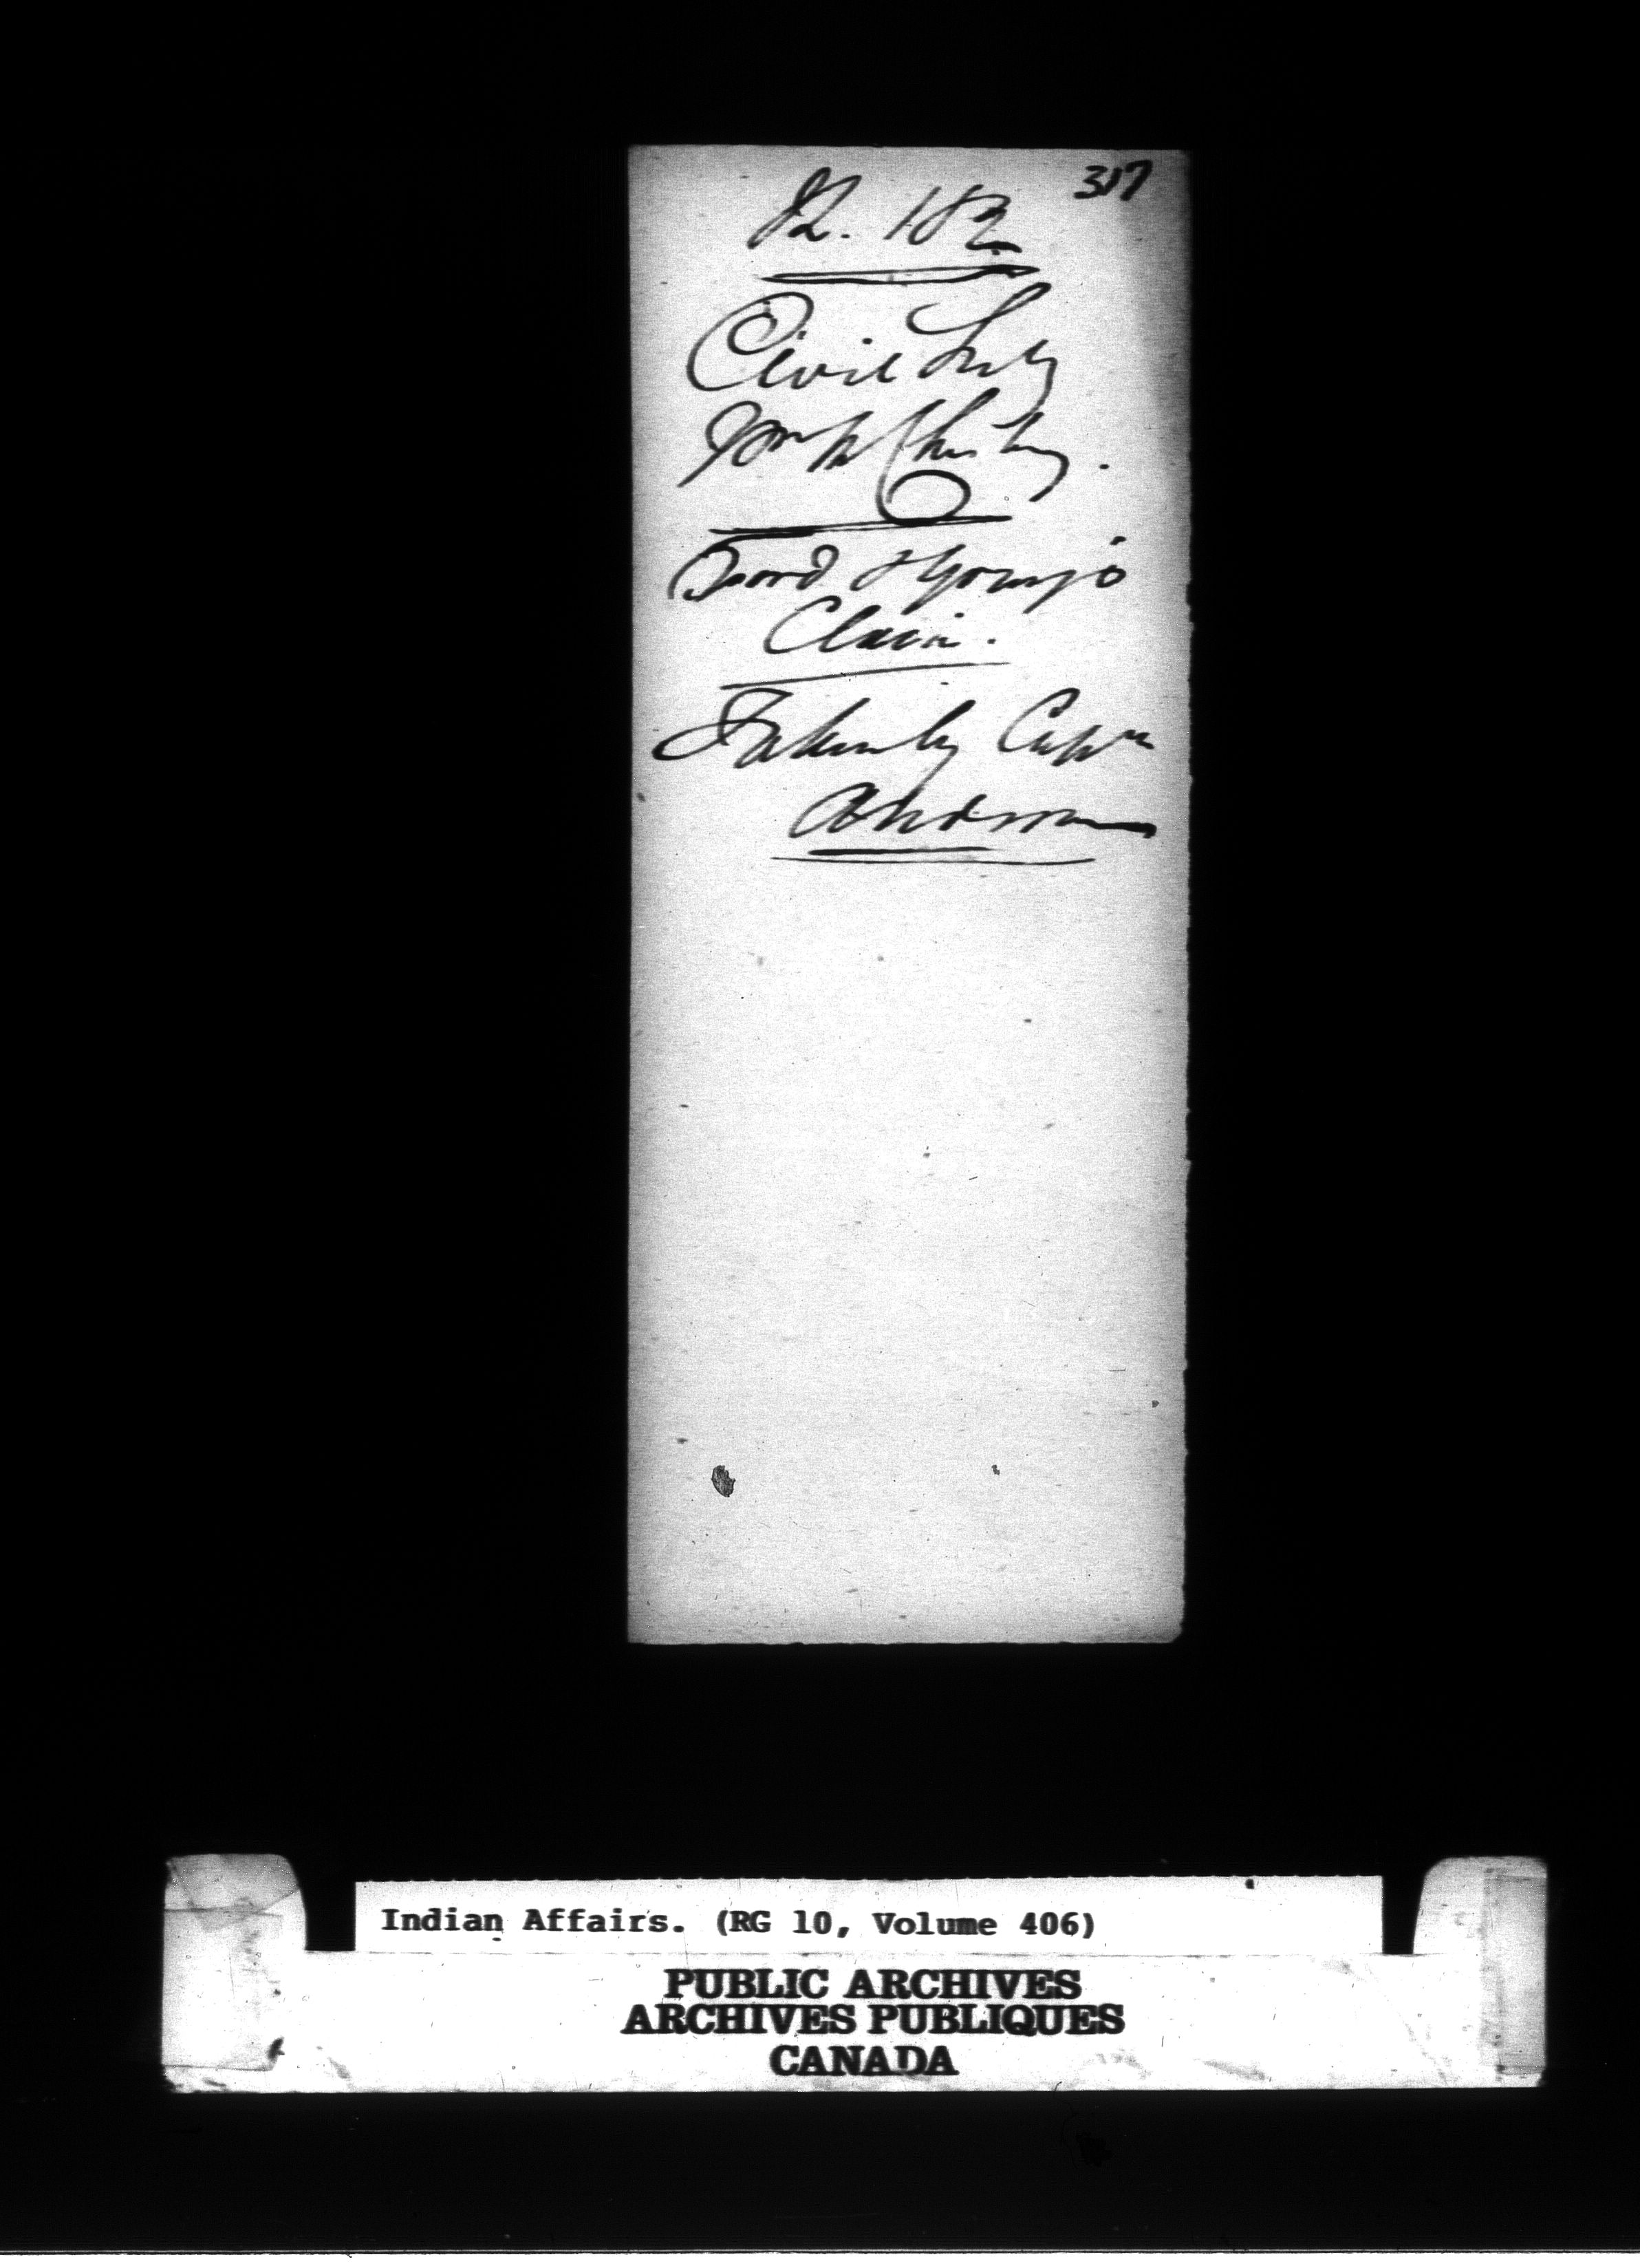 317
K. 182
Civil Secy
Claim.
Taken by Capn
Anderson
Indian Affairs. (RG 10, Volume 406)
PUBLIC ARCHIVES
ARCHIVES PUBLIQUES
CANADA